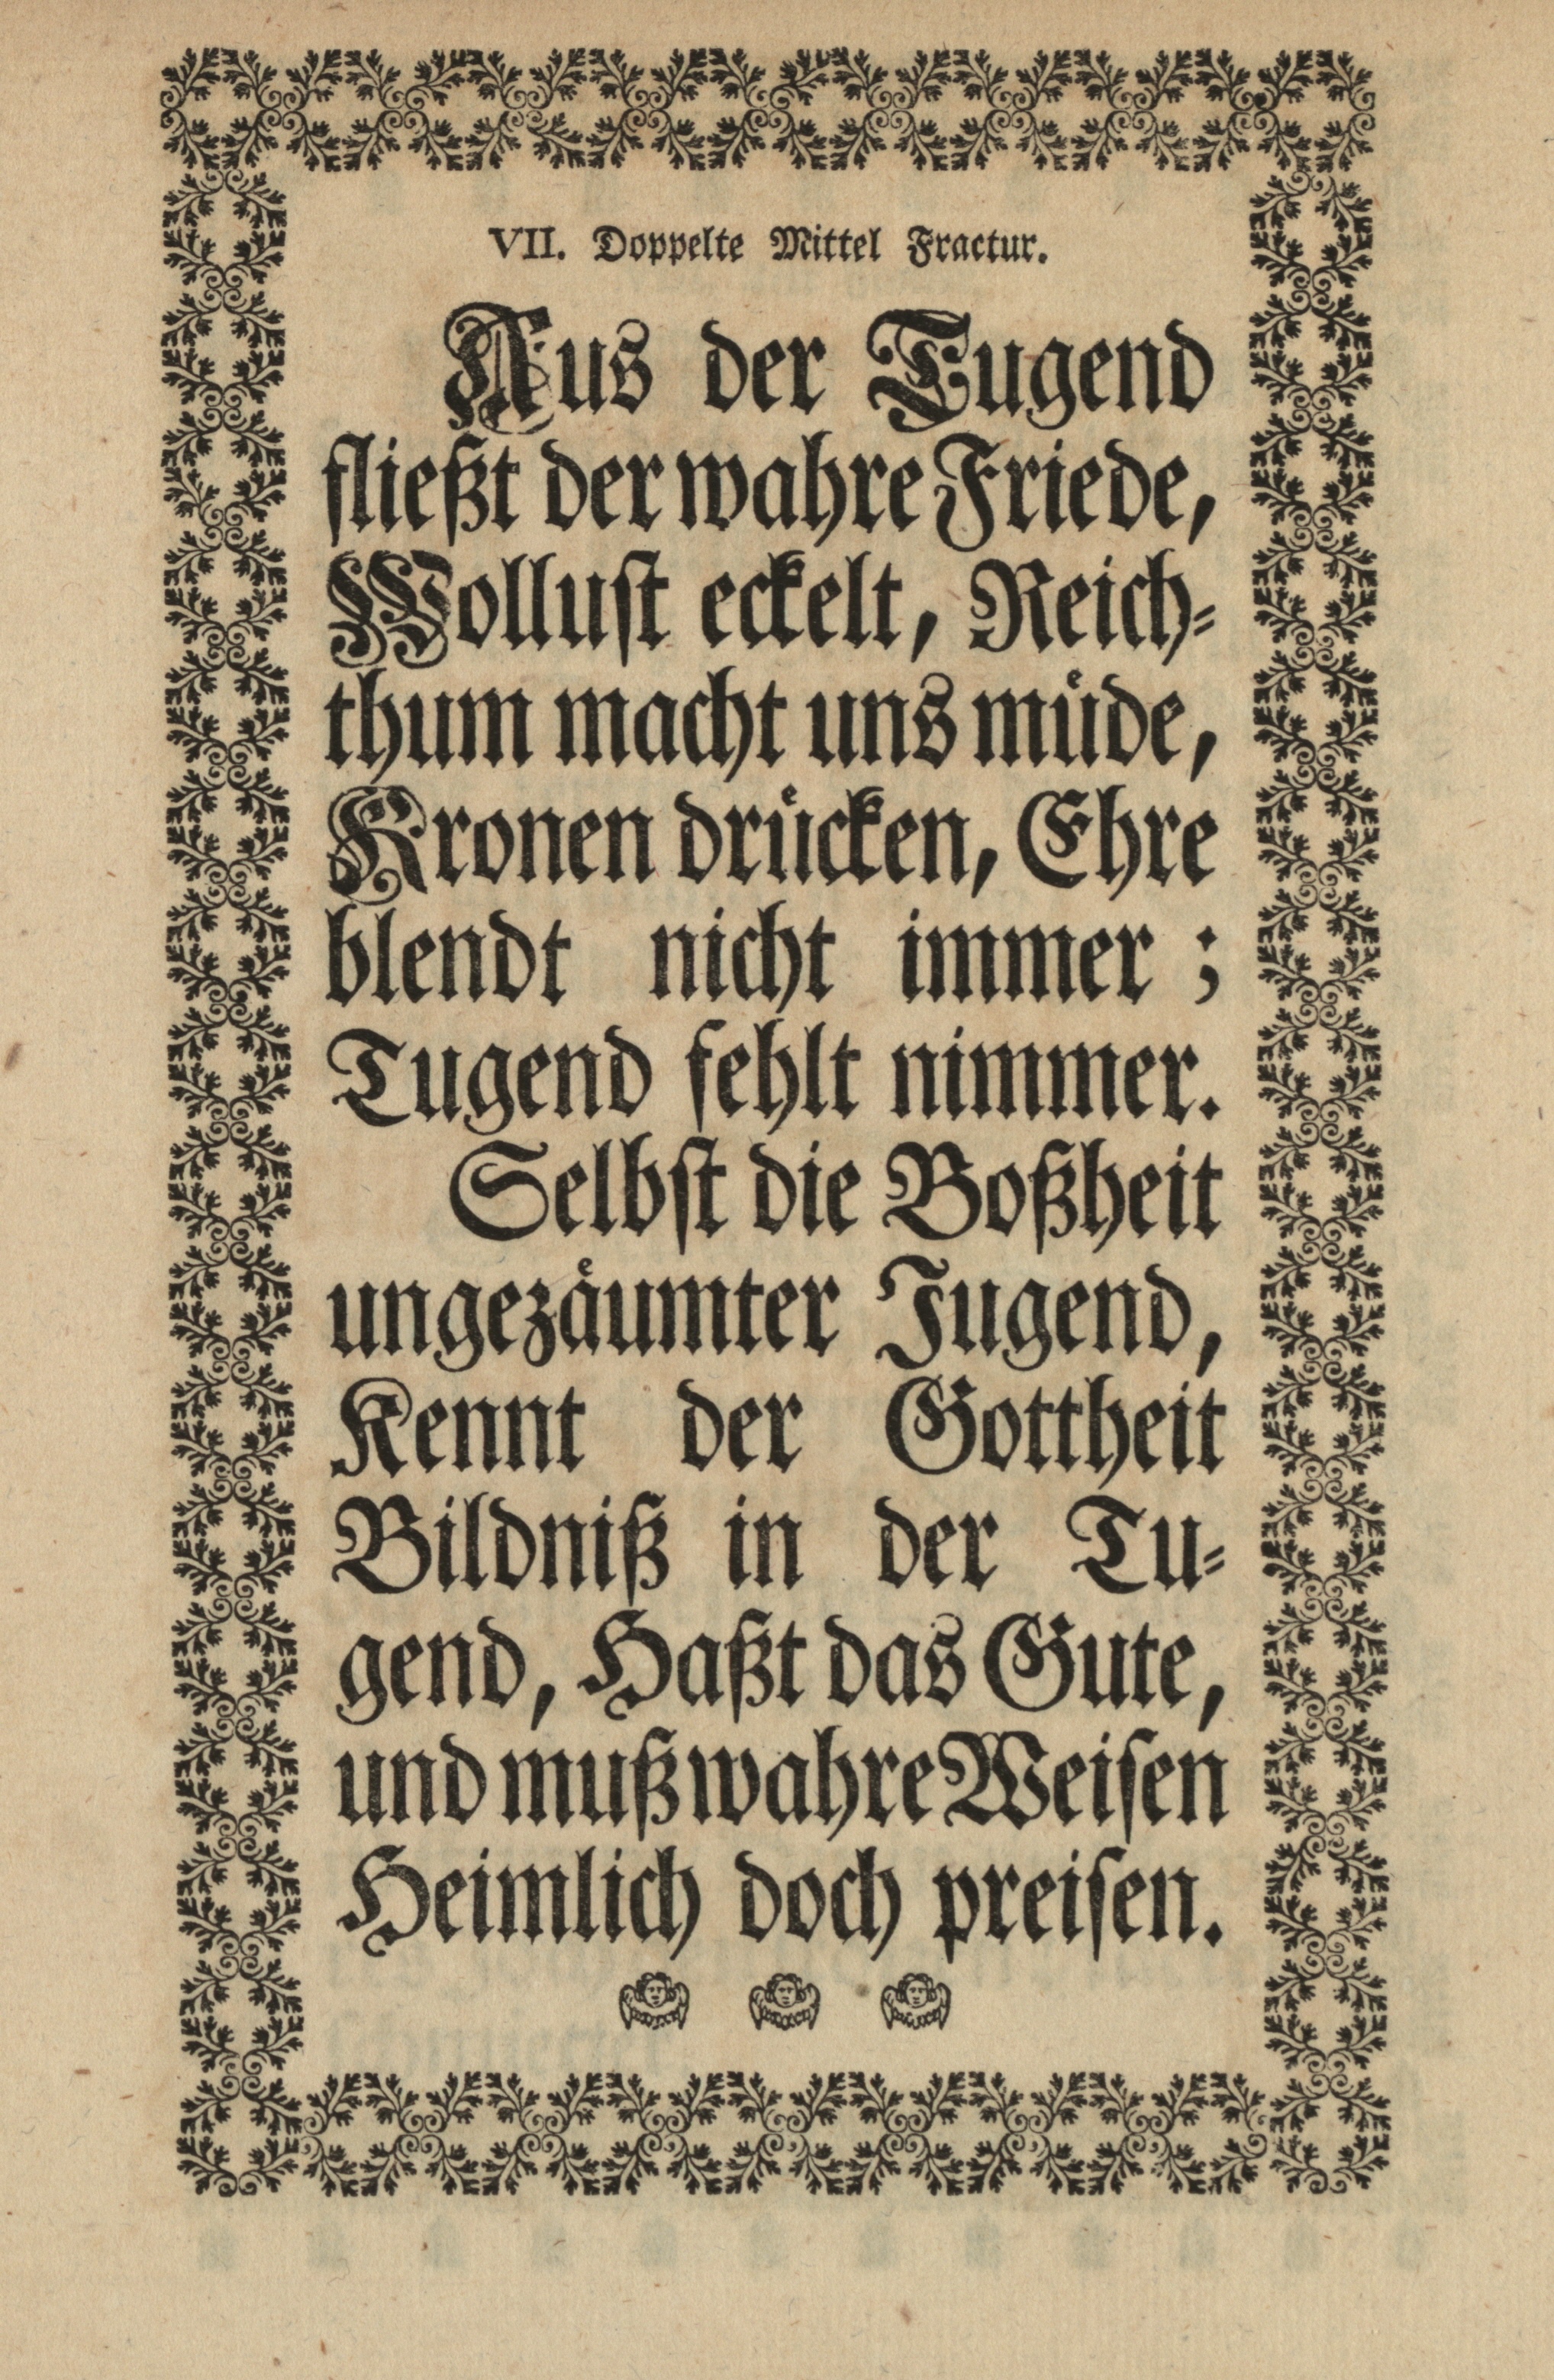 VII. Doppelte Mittel Fractur.
Aus der Tugend
fließt der wahre Friede,
Wolluſt eckelt, Reich⸗
thum macht uns muͤde,
Kronen druͤcken, Ehre
blendt nicht immer ;
Tugend fehlt nimmer.
Selbſt die Boßheit
ungezaͤumter Jugend,
Kennt der Gottheit
Bildniß in der Tu⸗
gend, Haßt das Gute,
und muß wahre Weiſen
Heimlich doch preiſen.